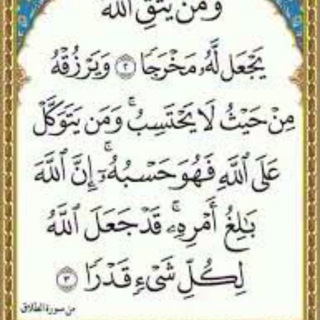 وَمَن يَتَّقِ ٱللَّهَ
يَجْعَل لَّهُۥ مَخْرَجًا ۝٢ وَيَرْزُقْهُ
مِنْ حَيْثُ لَا يَحْتَسِبُ ۚ وَمَن يَتَوَكَّلْ
عَلَى ٱللَّهِ فَهُوَ حَسْبُهُۥٓ ۚ إِنَّ ٱللَّهَ
بَٰلِغُ أَمْرِهِۦ ۚ قَدْ جَعَلَ ٱللَّهُ
لِكُلِّ شَىْءٍ قَدْرًا ۝٣
من سورة الطلاق